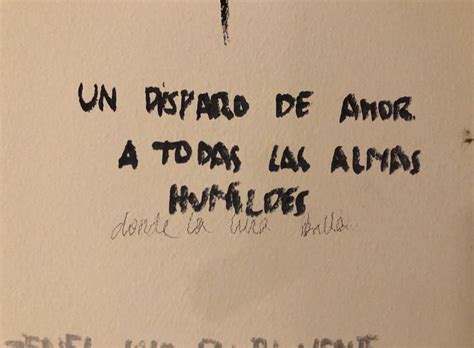 UN DISPARO DE AMOR
A TODAS LAS ALMAS
HUMILDES
donde la luna brilla